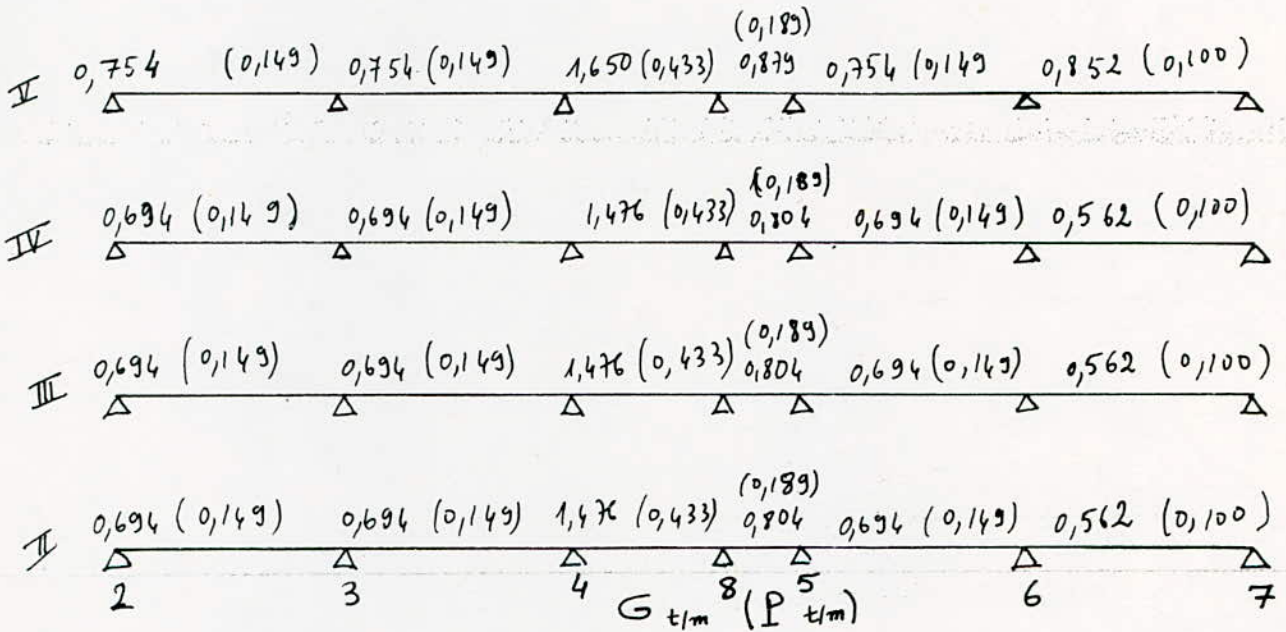 (0,189)
V 0,754 (0,149) 0,754 (0,149) 1,650 (0,433) 0,879 0,754 (0,149 0,852 (0,100)
(0,189)
IV 0,694 (0,149) 0,694 (0,149) 1,476 (0,433) 0,804 0,694 (0,149) 0,562 (0,100)
(0,189)
III 0,694 (0,149) 0,694 (0,149) 1,476 (0,433) 0,804 0,694 (0,149) 0,562 (0,100)
(0,189)
II 0,694 (0,149) 0,694 (0,149) 1,476 (0,433) 0,804 0,694 (0,149) 0,562 (0,100)
2 3 4 8 5 6 7
G t/m (P t/m)